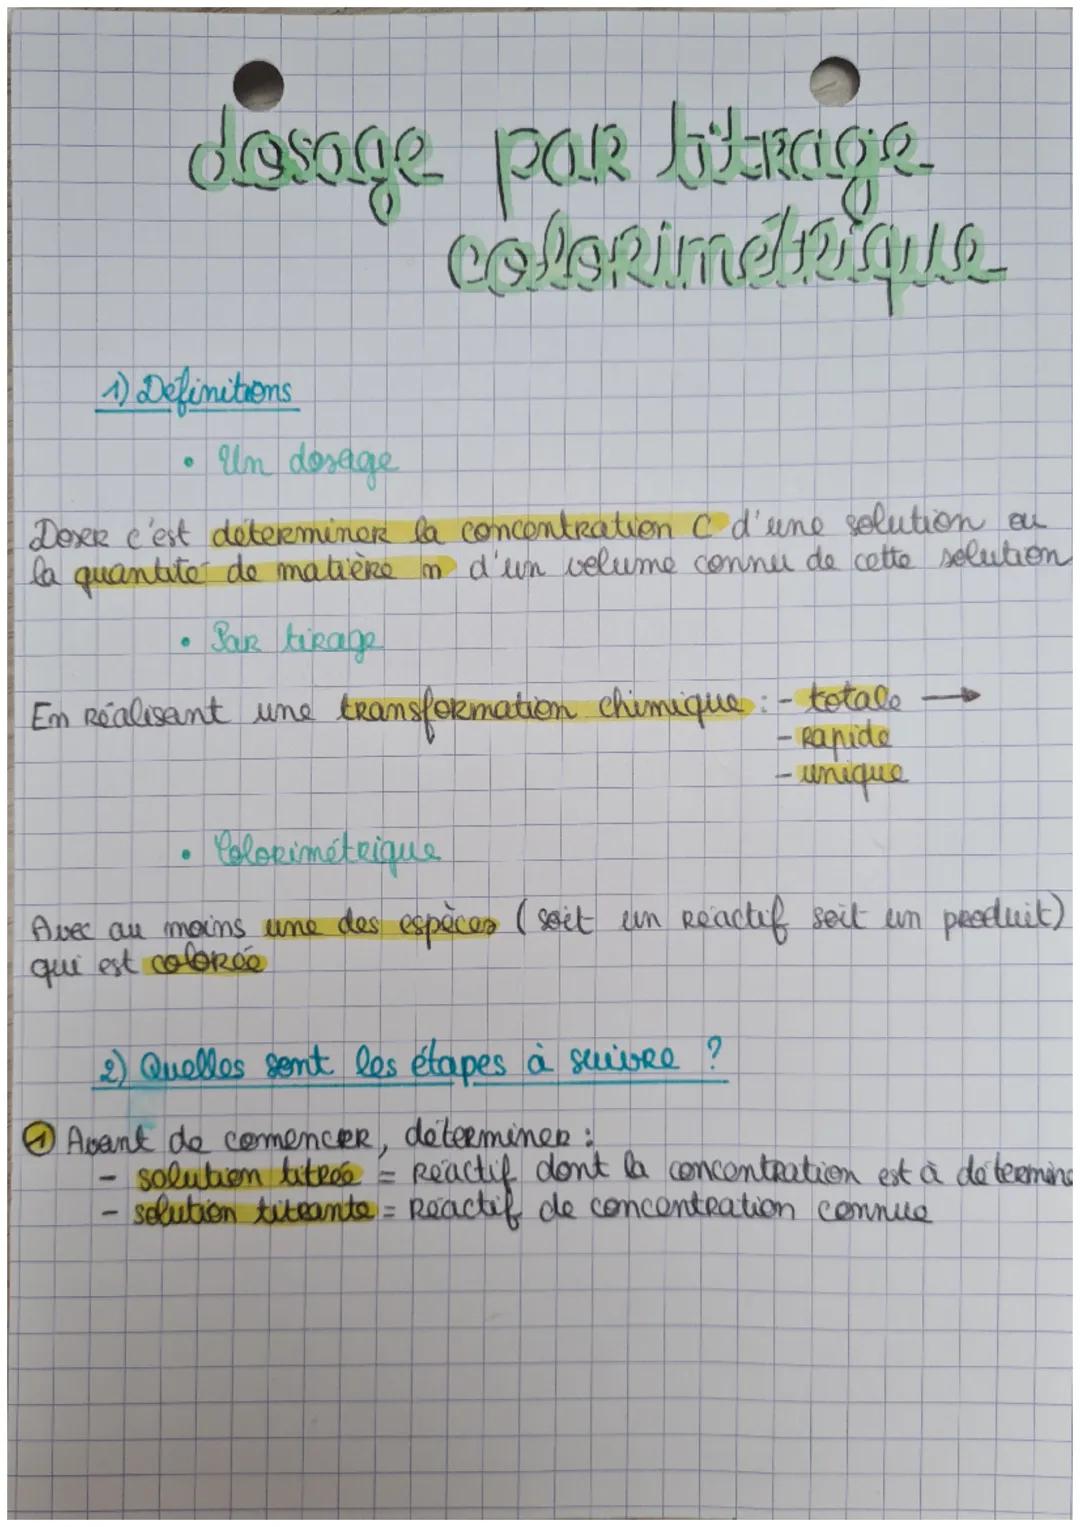 dosage par titrage
colorimétrique
1) Définitions
• Un dosage
Doser c'est déterminer la concentration C d'une solution ou
la quantité de matière n d'un volume connu de cette solution
• Par tirage
En réalisant une transformation chimique : - totale →
- rapide
- unique
• Colorimétrique
Avec au moins une des espèces (soit un réactif soit un produit)
qui est colorée
2) Quelles sont les étapes à suivre ?
1 Avant de comencer, déterminer :
- solution titrée = Réactif dont la concentration est à détermine
- solution titrante = Réactif de concentration connue